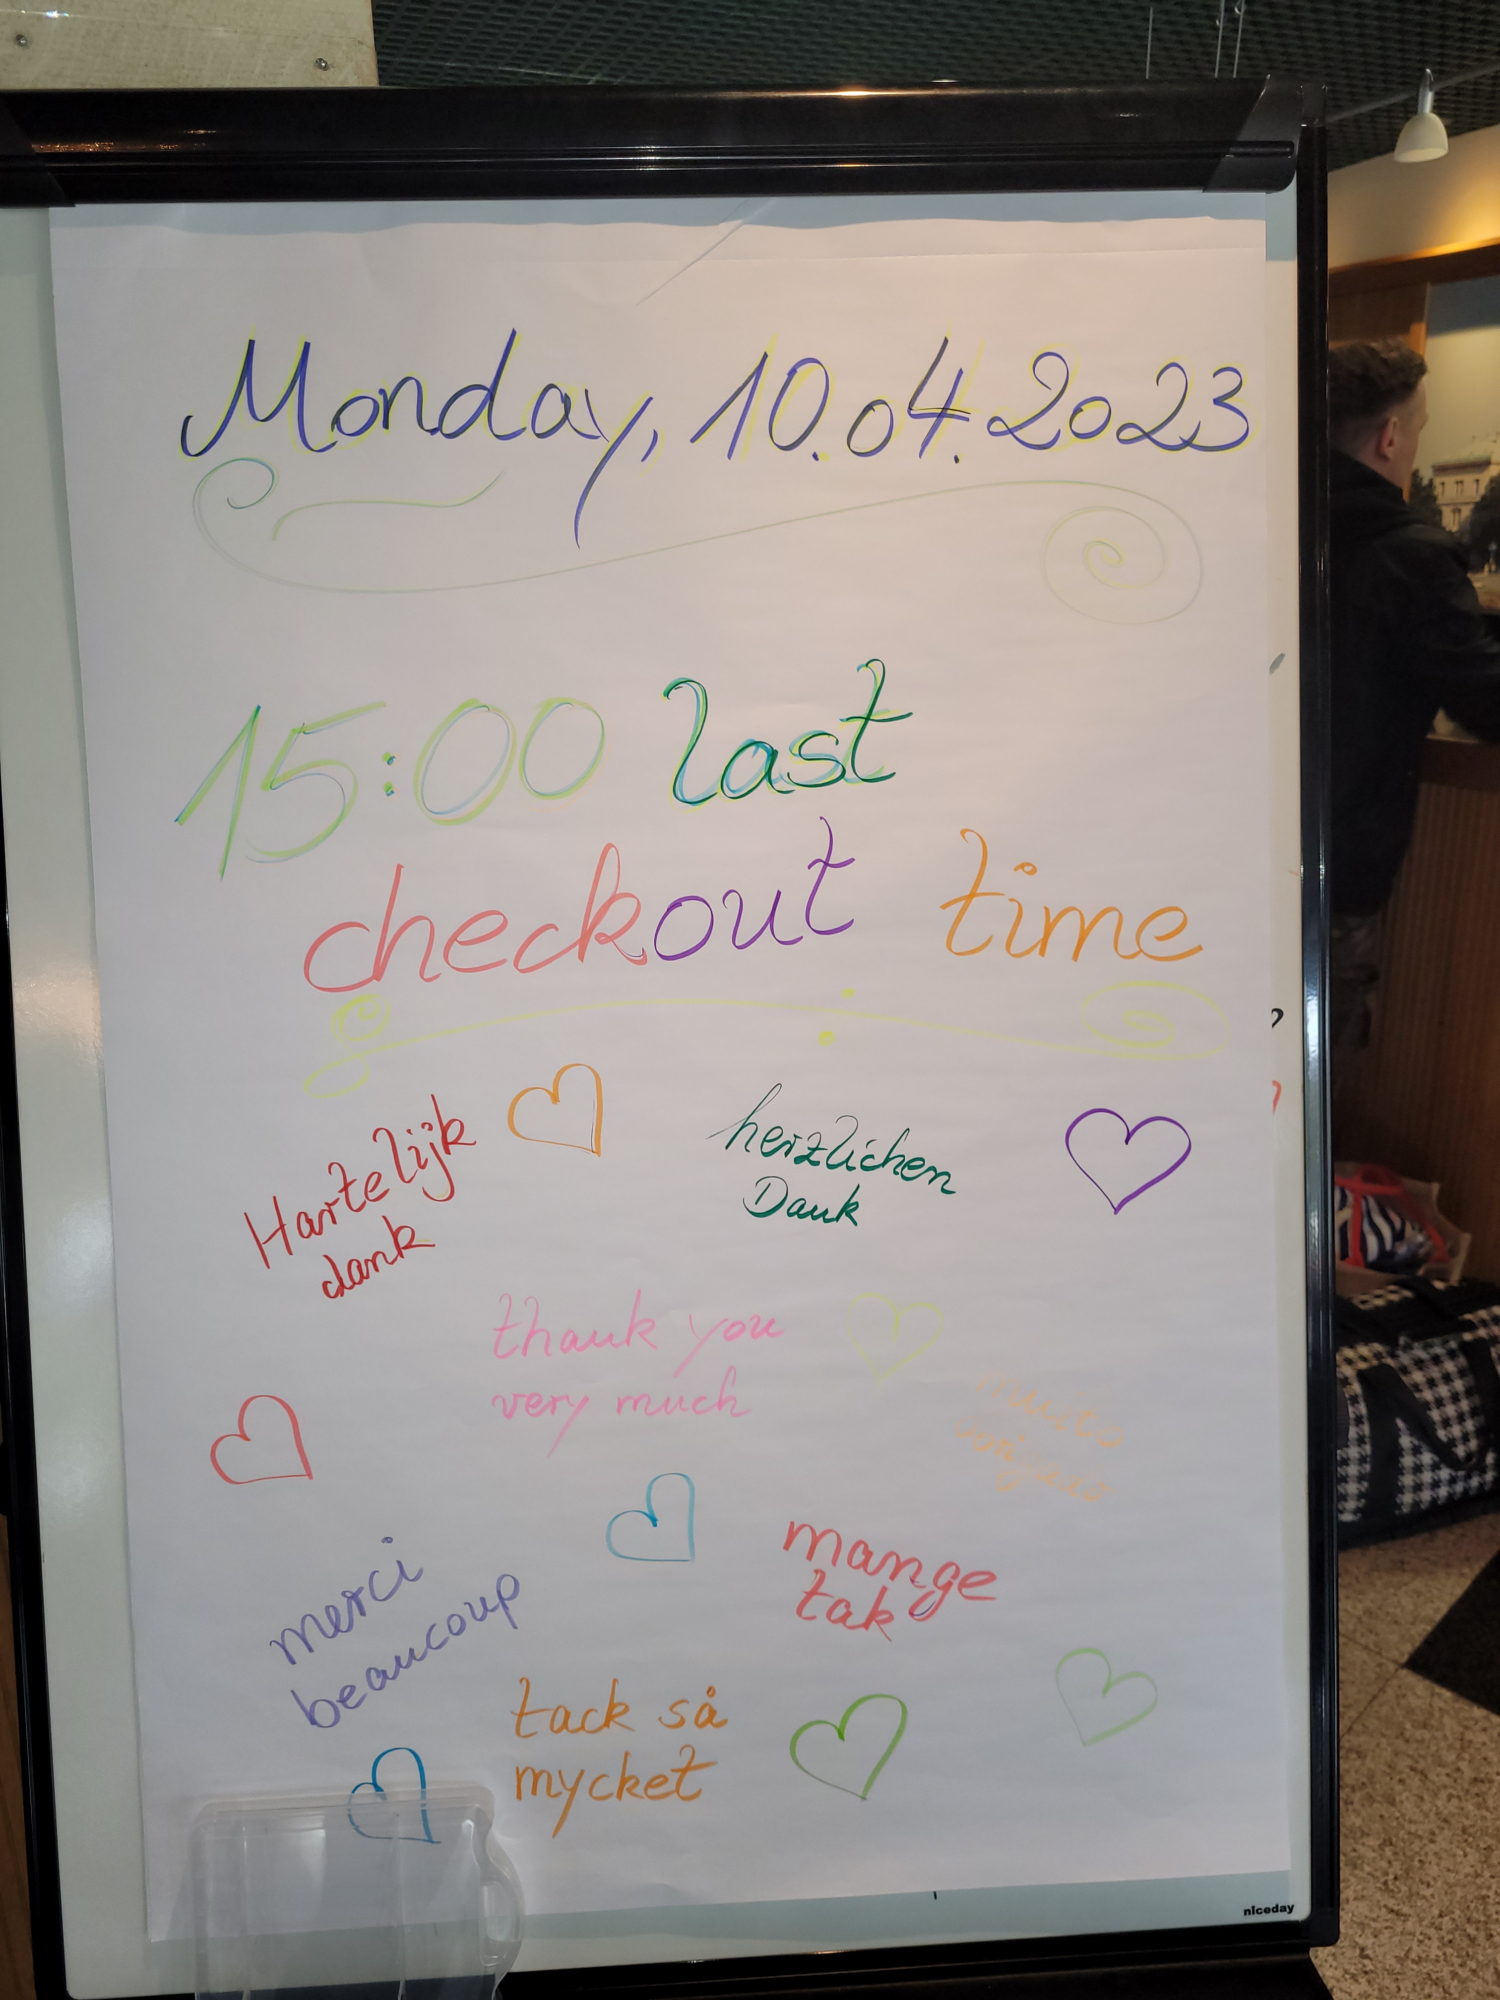 Monday, 10.04.2023
15:00 last
checkout time
Hartelijk
dank
herzlichen
Dank
thank you
very much
muito
merci
beaucoup
mange
tak
tack så
mycket
niceday